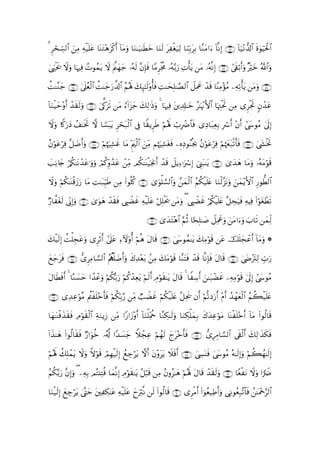 ٱلۡحَيَوٰةَ ٱلدُّنۡيَآ ۝ إِنَّآ ءَامَنَّا بِرَبِّنَا لِيَغۡفِرَ لَنَا خَطَٰيَٰنَا وَمَآ أَكۡرَهۡتَنَا عَلَيۡهِ مِنَ ٱلسِّحۡرِۗ
وَٱللَّهُ خَيۡرٞ وَأَبۡقَىٰٓ ۝ إِنَّهُۥ مَن يَأۡتِ رَبَّهُۥ مُجۡرِمٗا فَإِنَّ لَهُۥ جَهَنَّمَ لَا يَمُوتُ فِيهَا وَلَا يَحۡيَىٰ ۝
وَمَن يَأۡتِهِۦ مُؤۡمِنٗا قَدۡ عَمِلَ ٱلصَّٰلِحَٰتِ فَأُوْلَٰٓئِكَ لَهُمُ ٱلدَّرَجَٰتُ ٱلۡعُلَىٰ ۝ جَنَّٰتُ
عَدۡنٖ تَجۡرِي مِن تَحۡتِهَا ٱلۡأَنۡهَٰرُ خَٰلِدِينَ فِيهَاۚ وَذَٰلِكَ جَزَآءُ مَن تَزَكَّىٰ ۝ وَلَقَدۡ أَوۡحَيۡنَآ
إِلَىٰ مُوسَىٰٓ أَنۡ أَسۡرِ بِعِبَادِي فَٱضۡرِبۡ لَهُمۡ طَرِيقٗا فِي ٱلۡبَحۡرِ يَبَسٗا لَّا تَخَٰفُ دَرَكٗا وَلَا
تَخۡشَىٰ ۝ فَأَتۡبَعَهُمۡ فِرۡعَوۡنُ بِجُنُودِهِۦ فَغَشِيَهُم مِّنَ ٱلۡيَمِّ مَا غَشِيَهُمۡ ۝ وَأَضَلَّ فِرۡعَوۡنُ
قَوۡمَهُۥ وَمَا هَدَىٰ ۝ يَٰبَنِيٓ إِسۡرَٰٓءِيلَ قَدۡ أَنجَيۡنَٰكُم مِّنۡ عَدُوِّكُمۡ وَوَٰعَدۡنَٰكُمۡ جَانِبَ
ٱلطُّورِ ٱلۡأَيۡمَنَ وَنَزَّلۡنَا عَلَيۡكُمُ ٱلۡمَنَّ وَٱلسَّلۡوَىٰ ۝ كُلُواْ مِن طَيِّبَٰتِ مَا رَزَقۡنَٰكُمۡ وَلَا
تَطۡغَوۡاْ فِيهِ فَيَحِلَّ عَلَيۡكُمۡ غَضَبِيۖ وَمَن يَحۡلِلۡ عَلَيۡهِ غَضَبِي فَقَدۡ هَوَىٰ ۝ وَإِنِّي لَغَفَّارٞ
لِّمَن تَابَ وَءَامَنَ وَعَمِلَ صَٰلِحٗا ثُمَّ ٱهۡتَدَىٰ ۝
۞ وَمَآ أَعۡجَلَكَ عَن قَوۡمِكَ يَٰمُوسَىٰ ۝ قَالَ هُمۡ أُوْلَآءِ عَلَىٰٓ أَثَرِي وَعَجِلۡتُ إِلَيۡكَ
رَبِّ لِتَرۡضَىٰ ۝ قَالَ فَإِنَّا قَدۡ فَتَنَّا قَوۡمَكَ مِنۢ بَعۡدِكَ وَأَضَلَّهُمُ ٱلسَّامِرِيُّ ۝ فَرَجَعَ
مُوسَىٰٓ إِلَىٰ قَوۡمِهِۦ غَضۡبَٰنَ أَسِفٗاۚ قَالَ يَٰقَوۡمِ أَلَمۡ يَعِدۡكُمۡ رَبُّكُمۡ وَعۡدًا حَسَنًاۚ أَفَطَالَ
عَلَيۡكُمُ ٱلۡعَهۡدُ أَمۡ أَرَدتُّمۡ أَن يَحِلَّ عَلَيۡكُمۡ غَضَبٞ مِّن رَّبِّكُمۡ فَأَخۡلَفۡتُم مَّوۡعِدِي ۝
قَالُواْ مَآ أَخۡلَفۡنَا مَوۡعِدَكَ بِمَلۡكِنَا وَلَٰكِنَّا حُمِّلۡنَآ أَوۡزَارٗا مِّن زِينَةِ ٱلۡقَوۡمِ فَقَذَفۡنَٰهَا
فَكَذَٰلِكَ أَلۡقَى ٱلسَّامِرِيُّ ۝ فَأَخۡرَجَ لَهُمۡ عِجۡلٗا جَسَدٗا لَّهُۥ خُوَارٞ فَقَالُواْ هَٰذَآ
إِلَٰهُكُمۡ وَإِلَٰهُ مُوسَىٰ فَنَسِيَ ۝ أَفَلَا يَرَوۡنَ أَلَّا يَرۡجِعُ إِلَيۡهِمۡ قَوۡلٗا وَلَا يَمۡلِكُ لَهُمۡ
ضَرّٗا وَلَا نَفۡعٗا ۝ وَلَقَدۡ قَالَ لَهُمۡ هَٰرُونُ مِن قَبۡلُ يَٰقَوۡمِ إِنَّمَا فُتِنتُم بِهِۦۖ وَإِنَّ رَبَّكُمُ
ٱلرَّحۡمَٰنُ فَٱتَّبِعُونِي وَأَطِيعُوٓاْ أَمۡرِي ۝ قَالُواْ لَن نَّبۡرَحَ عَلَيۡهِ عَٰكِفِينَ حَتَّىٰ يَرۡجِعَ إِلَيۡنَا